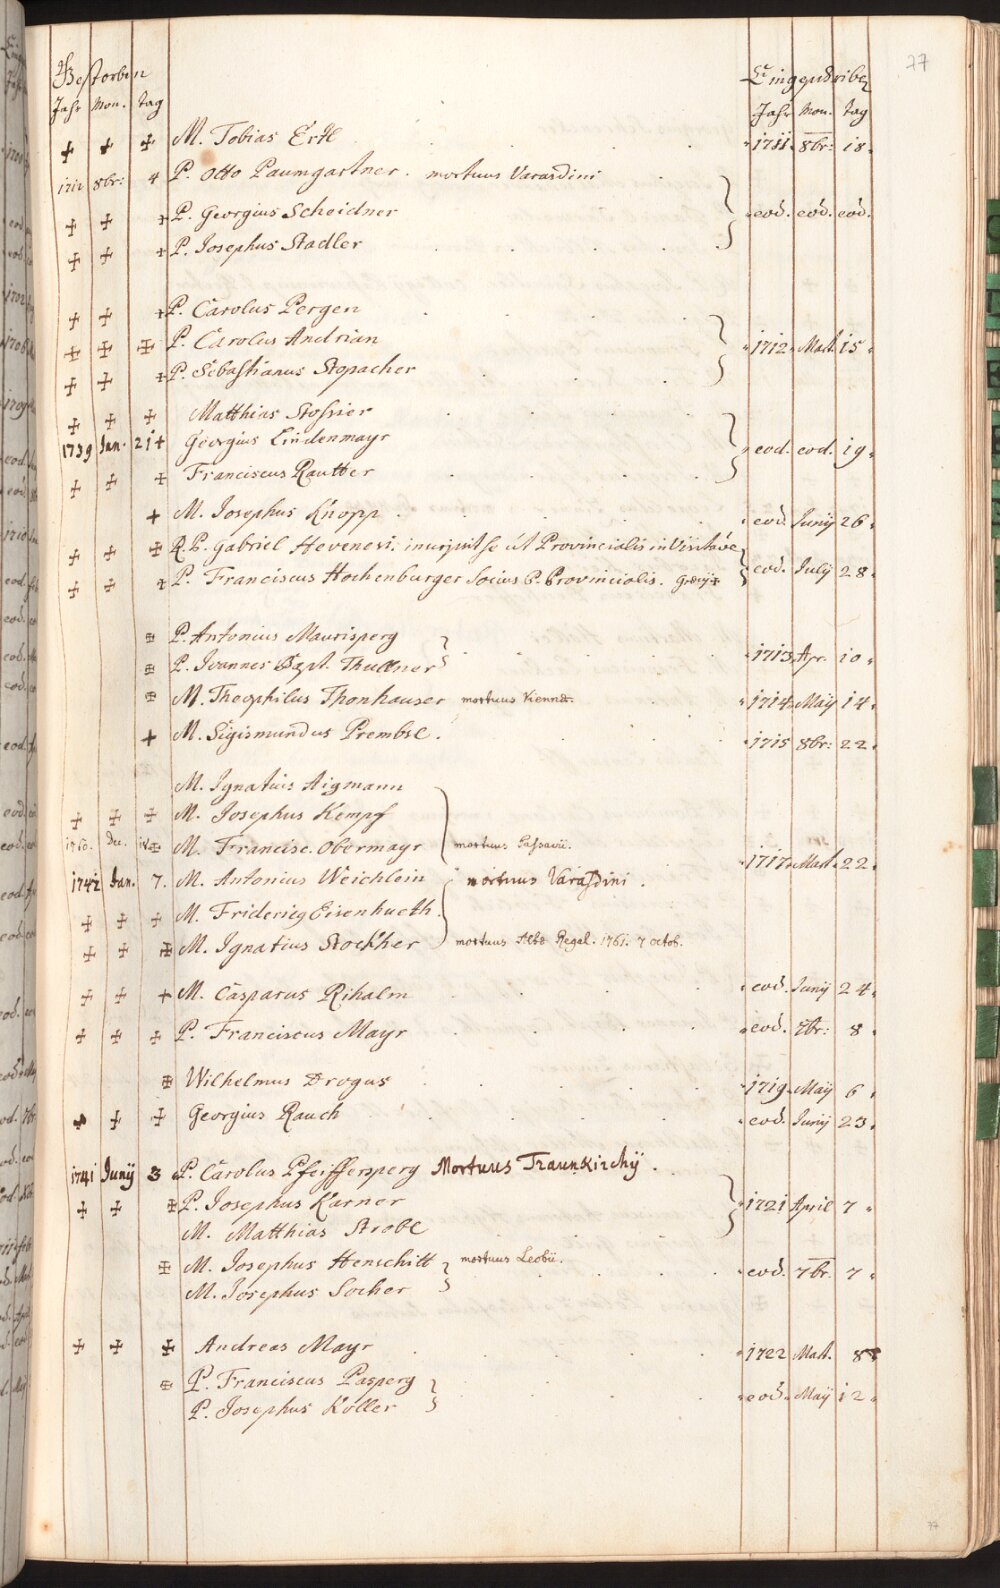 77
Gestorben Eingeschriben
Jahr Mon. tag Jahr Mon. tag
✠ ✠ ✠ M. Tobias Ertl 1711 8br: 18.
1712 8br: 4 P. Otto Paumgartner. mortuus Varasdini
✠ ✠ ✠ P. Georgius Scheidner eod. eod. eod.
✠ ✠ ✠ P. Josephus Stadler
✠ ✠ ✠ P. Carolus Pergen
✠ ✠ ✠ P. Carolus Andrian 1712 Mart. 15.
✠ ✠ ✠ P. Sebastianus Stopacher
✠ ✠ ✠ Matthias Stossier
1739 Jan. 21 + Georgius Lindenmayr eod. eod. 19.
✠ ✠ ✠ Franciscus Rautter
+ M. Josephus Knopp. eod. Junij 26.
✠ ✠ ✠ R.P. Gabriel Hevenesi, inscripsit se ut Provincialis in Visitaõe
✠ ✠ ✠ P. Franciscus Hochenburger Socius P. Provincialis. Græcij ✠ eod. July 28.
✠ P. Antonius Maurisperg
✠ P. Joannes Bapt. Thullner 1713 Apr. 10.
✠ M. Theophilus Thonhauser mortuus Viennæ. 1714 Maÿ 14.
+ M. Sigismundus Prembsl. 1715 8br: 22.
M. Ignatius Aigmann
✠ ✠ ✠ M. Josephus Kempf
1760. Dec. ✠ M. Francisc. Obermayr mortuus Passavii. 1717 Mart. 22.
1742 Jan. 7. M. Antonius Weichlein mortuus Varasdini.
✠ ✠ ✠ M. Friderieg Eisenhueth.
✠ ✠ ✠ M. Ignatius Stockher mortuus Albæ Regal. 1761. 7 octob.
✠ ✠ + M. Casparus Rihalm eod. Junij 24.
✠ ✠ ✠ P. Franciscus Mayr eod. 7br: 8.
✠ Wilhelmus Drogus 1719 Maÿ 6.
✠ ✠ ✠ Georgius Rauch eod. Junij 23.
1741 Junij 3 P. Carolus Pfeiffersperg Mortuus Traunkirchij.
✠ ✠ ✠ P. Josephus Karner 1721 April 7.
M. Matthias Strobl
✠ M. Josephus Henschitt mortuus Leobii. eod. 7br. 7.
M. Josephus Socher
✠ ✠ ✠ Andreas Mayr 1722 Mart. 8
✠ P. Franciscus Pasperg eod. Maÿ 12.
P. Josephus Köller
77